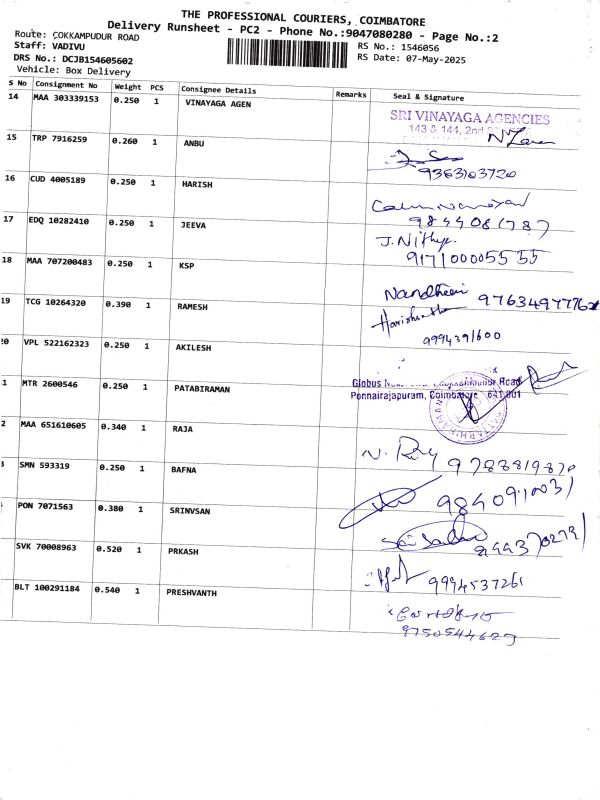 THE PROFESSIONAL COURIERS, COIMBATORE
Delivery Runsheet - PC2 - Phone No.:9047080280 - Page No.:2
Route: COKKAMPUDUR ROAD
Staff: VADIVU
DRS No.: DCJB154605602
Vehicle: Box Delivery
RS No.: 1546056
RS Date: 07-May-2025
S No Consignment No Weight PCS Consignee Details Remarks Seal & Signature
14 MAA 303339153 0.250 1 VINAYAGA AGEN
SRI VINAYAGA AGENCIES
143 & 144, 2nd
15 TRP 7916259 0.260 1 ANBU
9363103720
16 CUD 4005189 0.250 1 HARISH
17 EDQ 10282410 0.250 1 JEEVA
J. Nithya
9171000055 55
18 MAA 707200483 0.250 1 KSP
Nandhini
19 TCG 10264320 0.390 1 RAMESH
9994391600
20 VPL 522162323 0.250 1 AKILESH
1 MTR 2600546 0.250 1 PATABIRAMAN
Globus
Road
Ponnairajapuram, Coimbatore 641 001
2 MAA 651610605 0.340 1 RAJA
9788819870
3 SMN 593319 0.250 1 BAFNA
9840910031
PON 7071563 0.380 1 SRINVSAN
SVK 70008963 0.520 1 PRKASH
9994537261
BLT 100291184 0.540 1 PRESHVANTH
9750544629